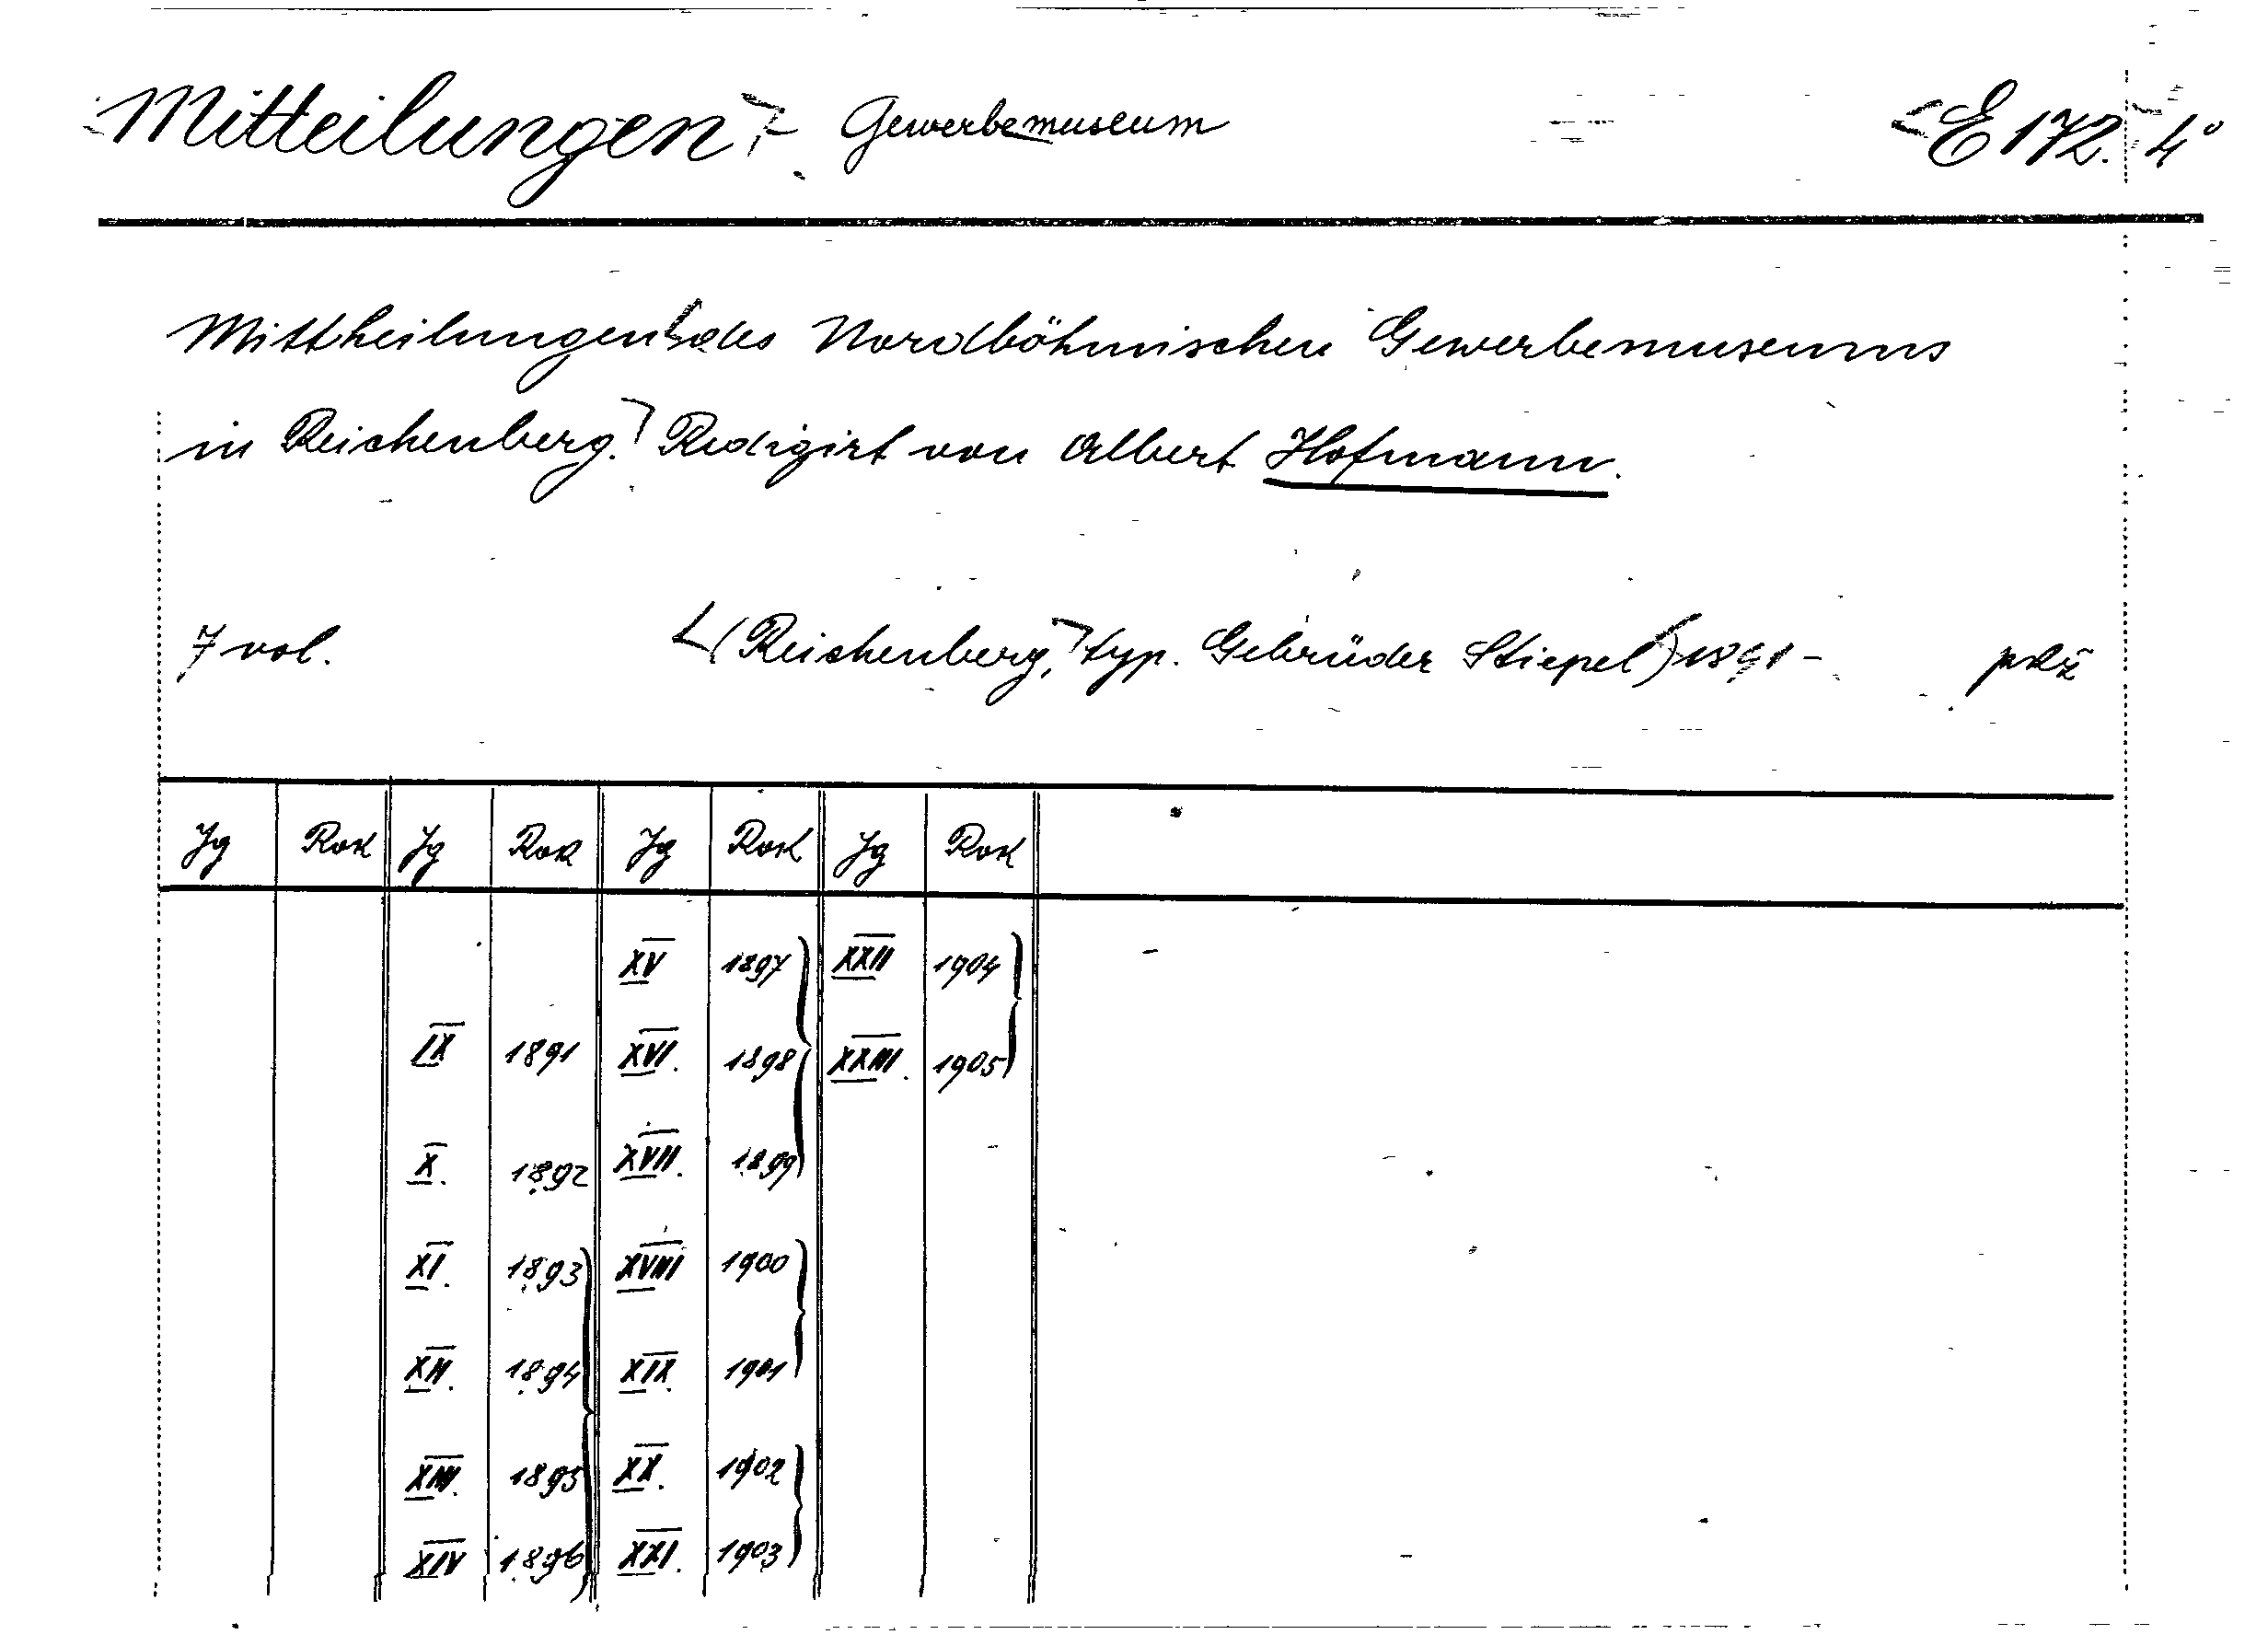 Mitteilungen Gewerbemuseum E 172. 4°
Mittheilungen des Nordböhmischen Gewerbemuseums
in Reichenberg. Redigirt von Albert Hofmann.
7 vol. (Reichenberg, typ. Gebrüder Stiepel) 1891-
Jg Rok Jg Rok Jg Rok Jg Rok
XV 1897 XXII 1904
IX 1891 XVI. 1898 XXIII. 1905
X. 1892 XVII. 1899
XI. 1893 XVIII 1900
XII. 1894 XIX. 1901
XIII. 1895 XX. 1902
XIV 1896 XXI. 1903